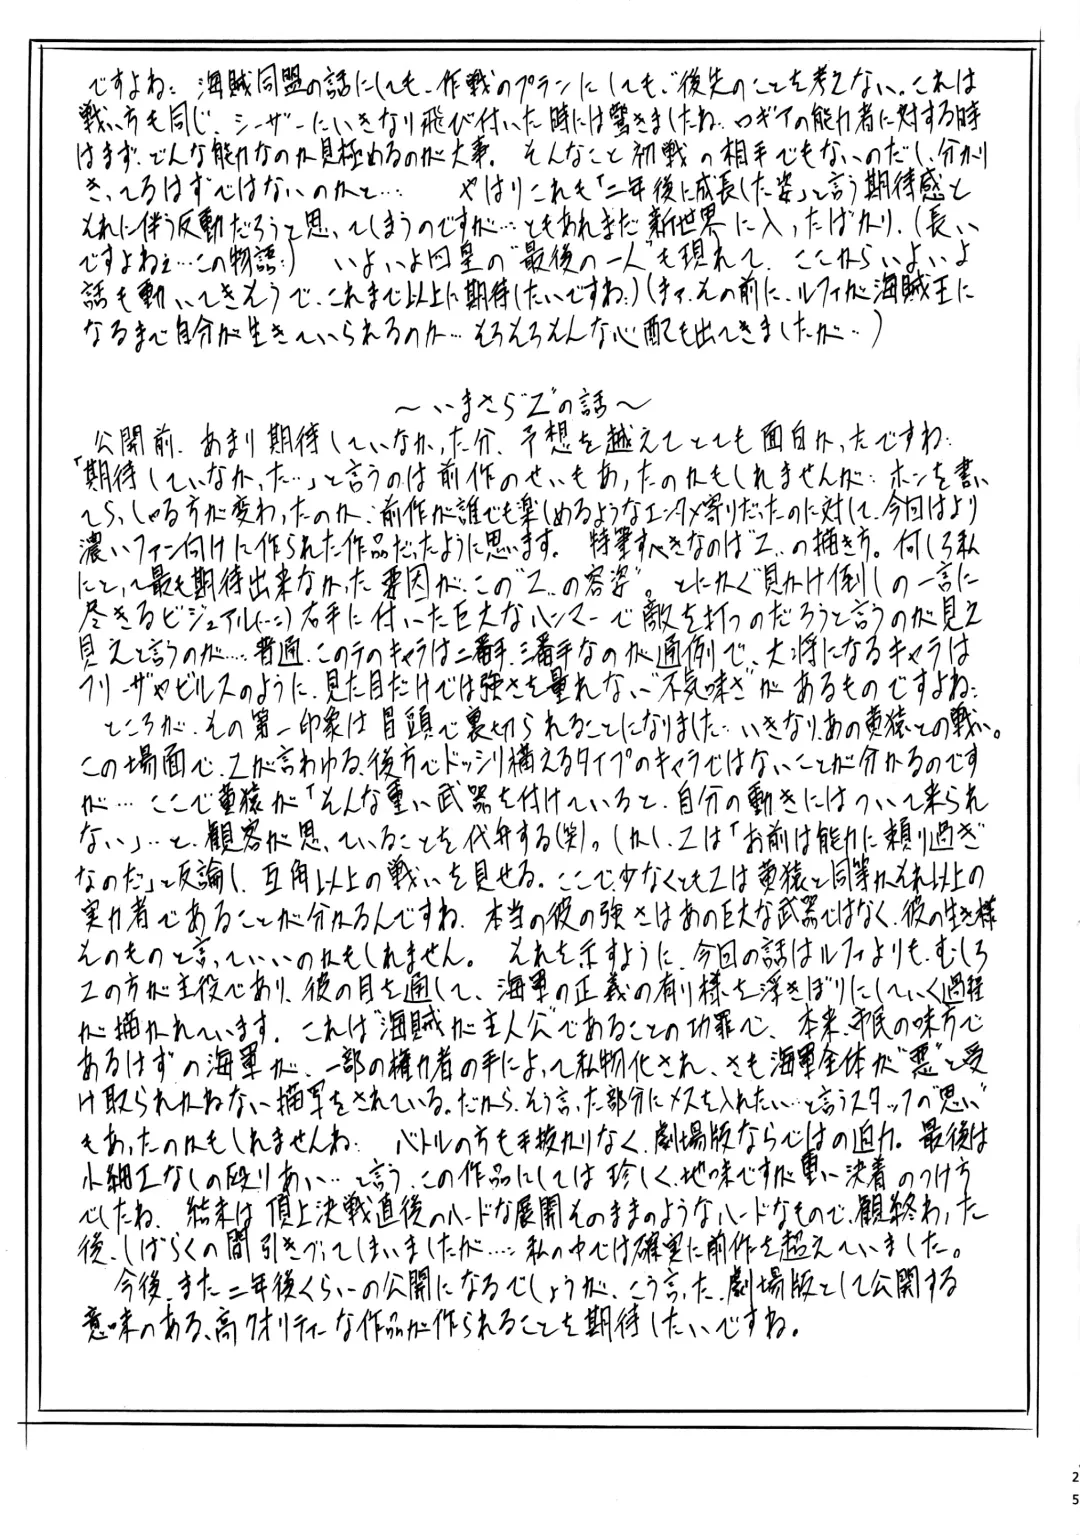 ですよね； 海賊同盟の話にしても、作戦のプランにしても、“後先のことを考えない。これは
戦い方も同じ、シーザーにいきなり飛び付いた時には驚きましたね… ロギアの能力者に対する時
はまず、どんな能力なのか見極めるのが大事。 そんなこと初戦の相手でもないのだし、分かり
きってるはずではないのかと… やはりこれも「二年後に成長した姿」と言う期待感と
それに伴う反動だろうと思ってしまうのですが… ともあれまだ新世界に入ったばかり、(長い
ですよねェ…この物語；) いよいよ四皇の“最後の一人”も現れて、ここからいよいよ
話も動いてきそうで、これまで以上に期待したいですね；)(まァ、その前に、ルフィが海賊王に
なるまで自分が生きていられるのか… そろそろそんな心配も出てきましたが…)
～いまさら“Z”の話～
公開前、あまり期待していなかった分、予想を越えてとても面白かったですね；
「期待していなかった…」と言うのは前作のせいもあったのかもしれませんが… ホンを書い
てらっしゃる方が変わったのか、前作が誰でも楽しめるようなエンタメ寄りだったのに対して、今回はより
濃いファン向けに作られた作品だったように思います。 特筆すべきなのは“Z”の描き方。何しろ私
にとって最も期待出来なかった要因が、この“Z”の容姿”。 とにかく“見かけ倒しの一言に
尽きるビジュアル(…；)右手に付いた巨大なハンマーで敵を打つのだろうと言うのが見え
見えと言うのが…… 普通、この手のキャラは二番手、三番手なのが通例で、大将になるキャラは
フリーザやビルスのように、見た目だけでは強さを量れない“不気味さ”があるものですよね；
ところが、その第一印象は冒頭で裏切られることになりました… いきなりあの黄猿との戦い。
この場面で、Zが言わゆる、後方でドッシリ構えるタイプのキャラではないことが分かるのです
が… ここで黄猿が「そんな重い武器を付けていると、自分の動きにはついて来られ
ない」…と、観客が思っていることを代弁する(笑)。しかし、Zは「お前は能力に頼り過ぎ
なのだ」と反論し、互角以上の戦いを見せる。ここで、少なくともZは黄猿と同等か、それ以上の
実力者であることが分かるんですね、本当の彼の強さはあの巨大な武器ではなく、彼の生き様
そのものと言っていいのかもしれません。 それを示すように、今回の話はルフィよりも、むしろ
Zの方が主役であり、彼の目を通して、海軍の正義の有り様を浮きぼりにしていく過程
が描かれています。 これは“海賊が主人公”であることの功罪で、本来、市民の味方で
あるはずの海軍が、一部の権力者の手によって私物化され、さも海軍全体が“悪”と受
け取られかねない描写をされている。だから、そう言った部分にメスを入れたい…と言うスタッフの“思い”
もあったのかもしれませんね； バトルの方も手抜かりなく、劇場版ならではの迫力。最後は
小細工なしの殴りあい… と言う、この作品にしては珍しく、地味ですが重い決着のつけ方
でしたね、 結末は頂上決戦直後のハードな展開そのままのようなハードなもので、観終わった
後、しばらくの間引きづってしまいましたが…； 私の中では確実に前作を超えていました。
今後、また二年後くらいの公開になるでしょうが、こう言った、劇場版として公開する
意味のある、高クオリティーな作品が作られることを期待したいですね。
25